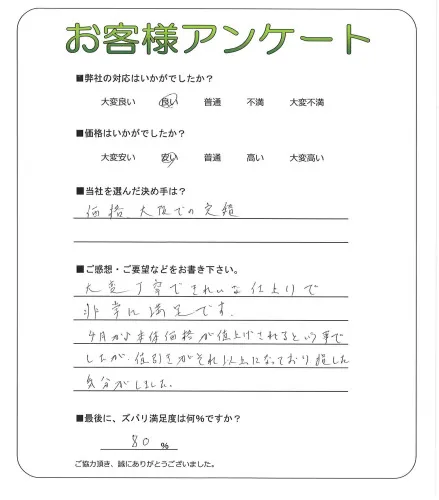 お客様アンケート
■弊社の対応はいかがでしたか？
大変良い 良い 普通 不満 大変不満
■価格はいかがでしたか？
大変安い 安い 普通 高い 大変高い
■当社を選んだ決め手は？
価格、大阪での実績
■ご感想・ご要望などをお書き下さい。
大変丁寧できれいな仕上りで
非常に満足です。
4月から本体価格が値上げされるという事で
したが、値引きがそれ以上になっており損した
気分がしました。
■最後に、ズバリ満足度は何％ですか？
80 ％
ご協力頂き、誠にありがとうございました。